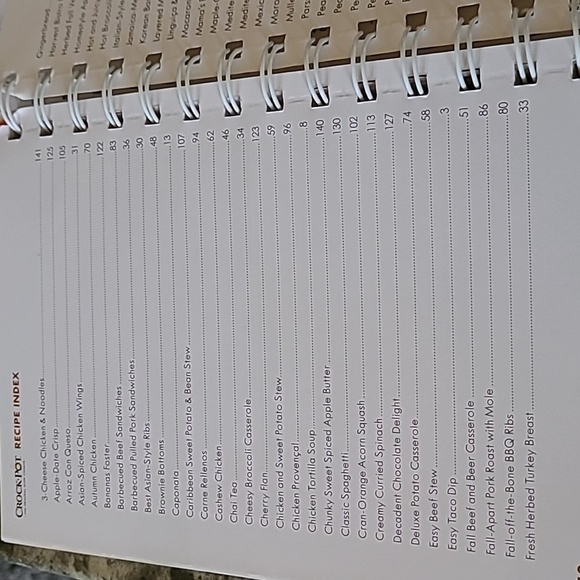 CROCK-POT RECIPE INDEX
3-Cheese Chicken & Noodles 141
Apple-Date Crisp 125
Arroz Con Queso 105
Asian-Spiced Chicken Wings 31
Autumn Chicken 70
Bananas Foster 122
Barbecued Beef Sandwiches 83
Barbecued Pulled Pork Sandwiches 36
Best Asian-Style Ribs 30
Brownie Bottoms 48
Caponata 13
Caribbean Sweet Potato & Bean Stew 107
Carne Rellenos 94
Cashew Chicken 62
Chai Tea 46
Cheesy Broccoli Casserole 34
Cherry Flan 123
Chicken and Sweet Potato Stew 59
Chicken Provençal 96
Chicken Tortilla Soup 8
Chunky Sweet Spiced Apple Butter 140
Classic Spaghetti 130
Cran-Orange Acorn Squash 102
Creamy Curried Spinach 113
Decadent Chocolate Delight 127
Deluxe Potato Casserole 74
Easy Beef Stew 58
Easy Taco Dip 3
Fall Beef and Beer Casserole 51
Fall-Apart Pork Roast with Mole 86
Fall-off-the-Bone BBQ Ribs 80
Fresh Herbed Turkey Breast 33
Herbed Fall
Homestyle
Hot and
Hot Broccoli
Italian-Style
Jamaica-Me
Korean
Layered